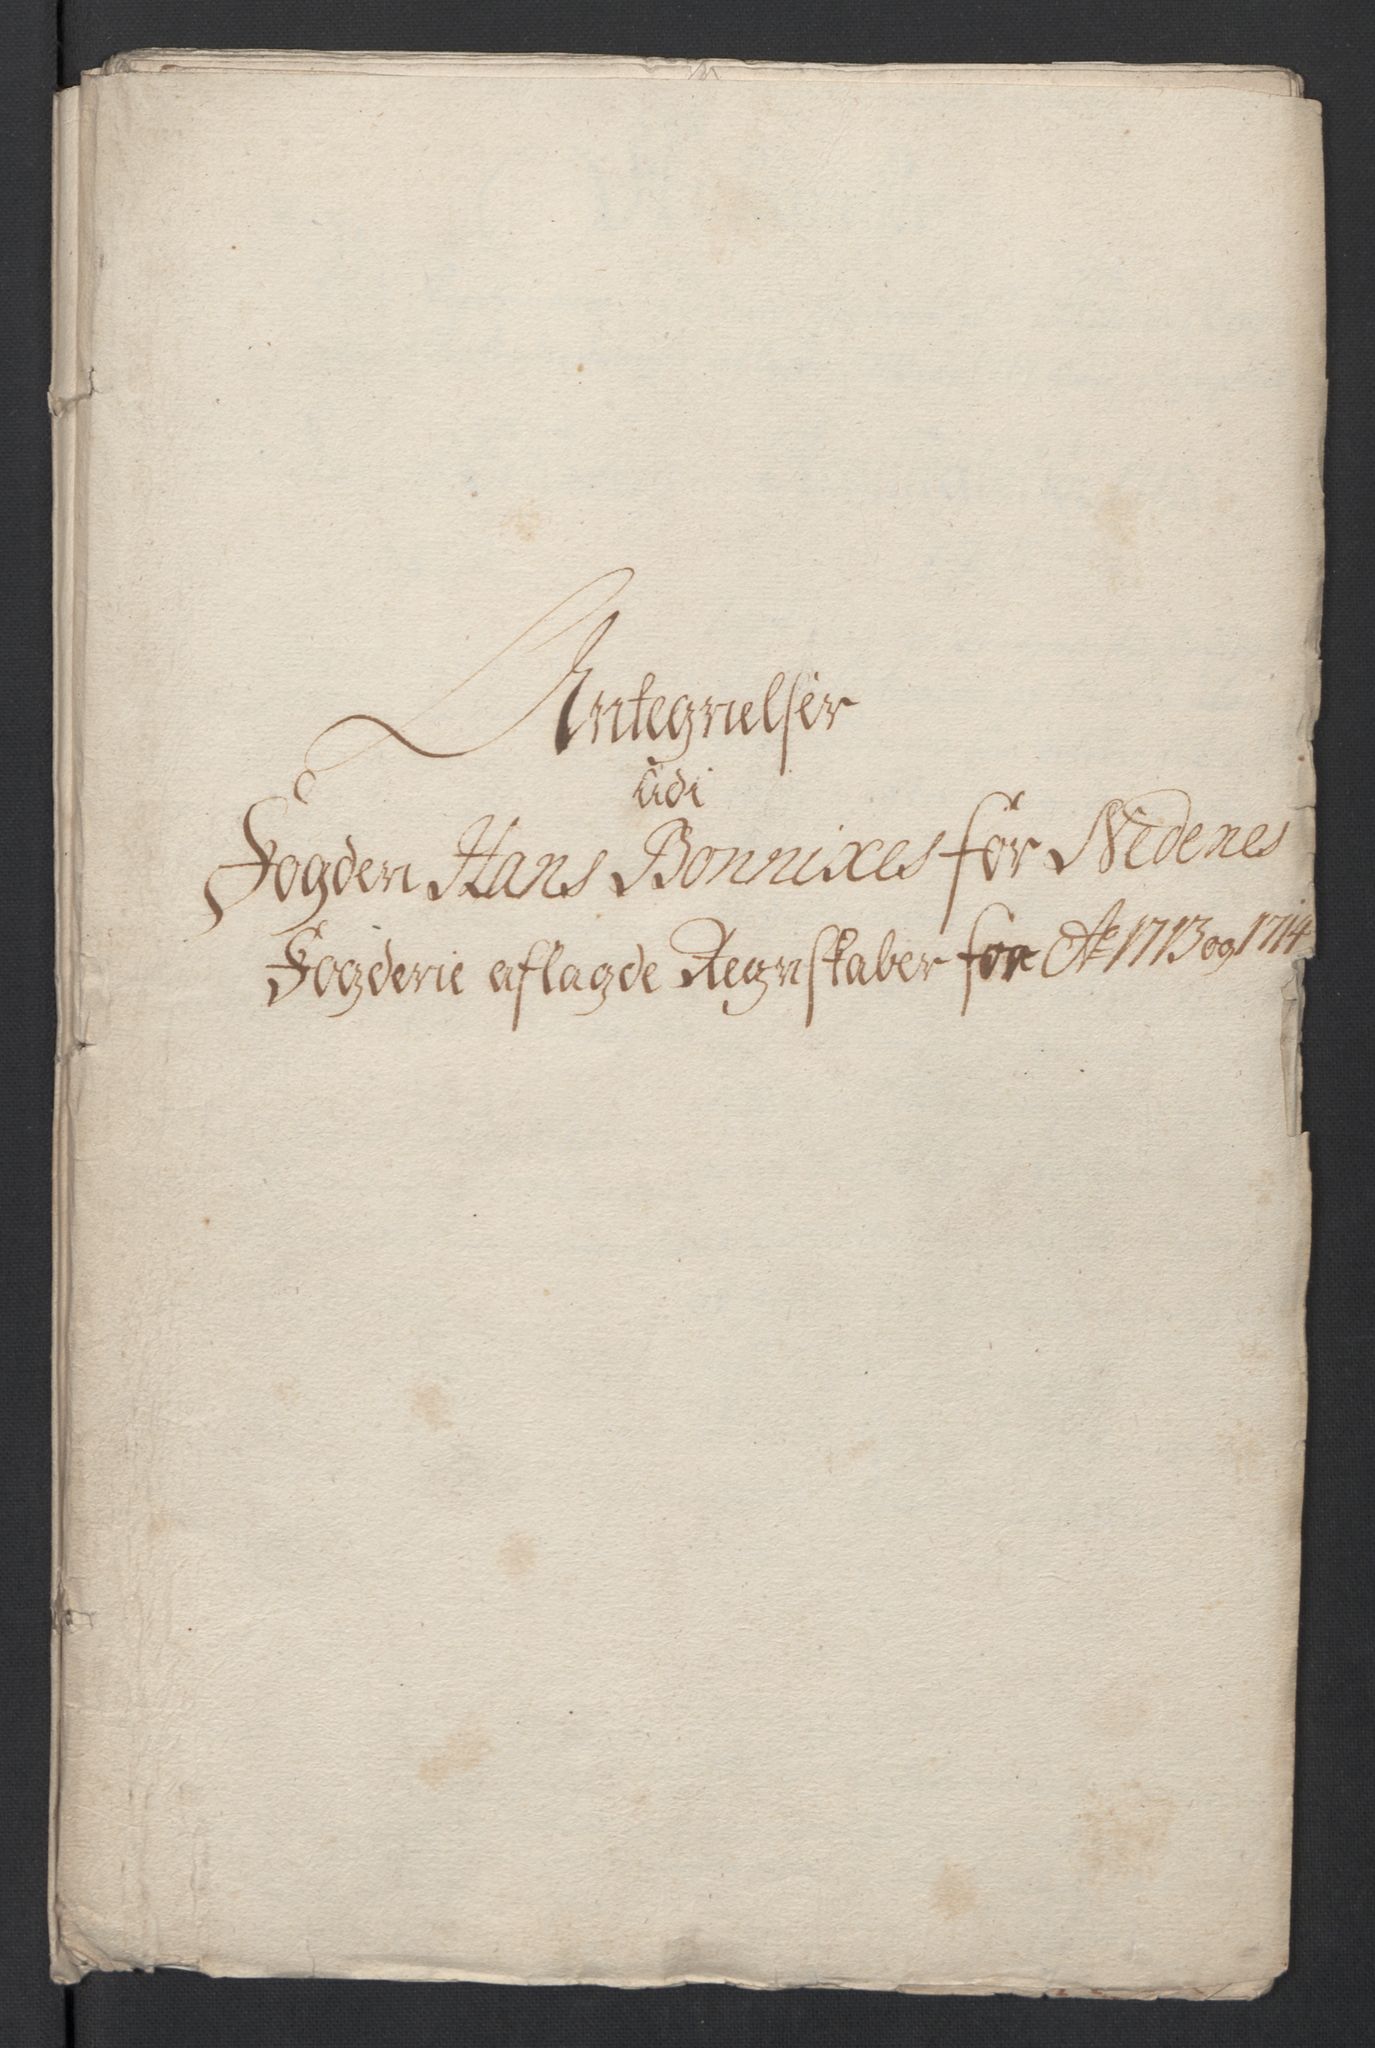 Antegnelser
udi
Fogden Hans Bonnixes for Nedenes
Fogderie aflagde Regnskaber for Ao 1713 og 1714